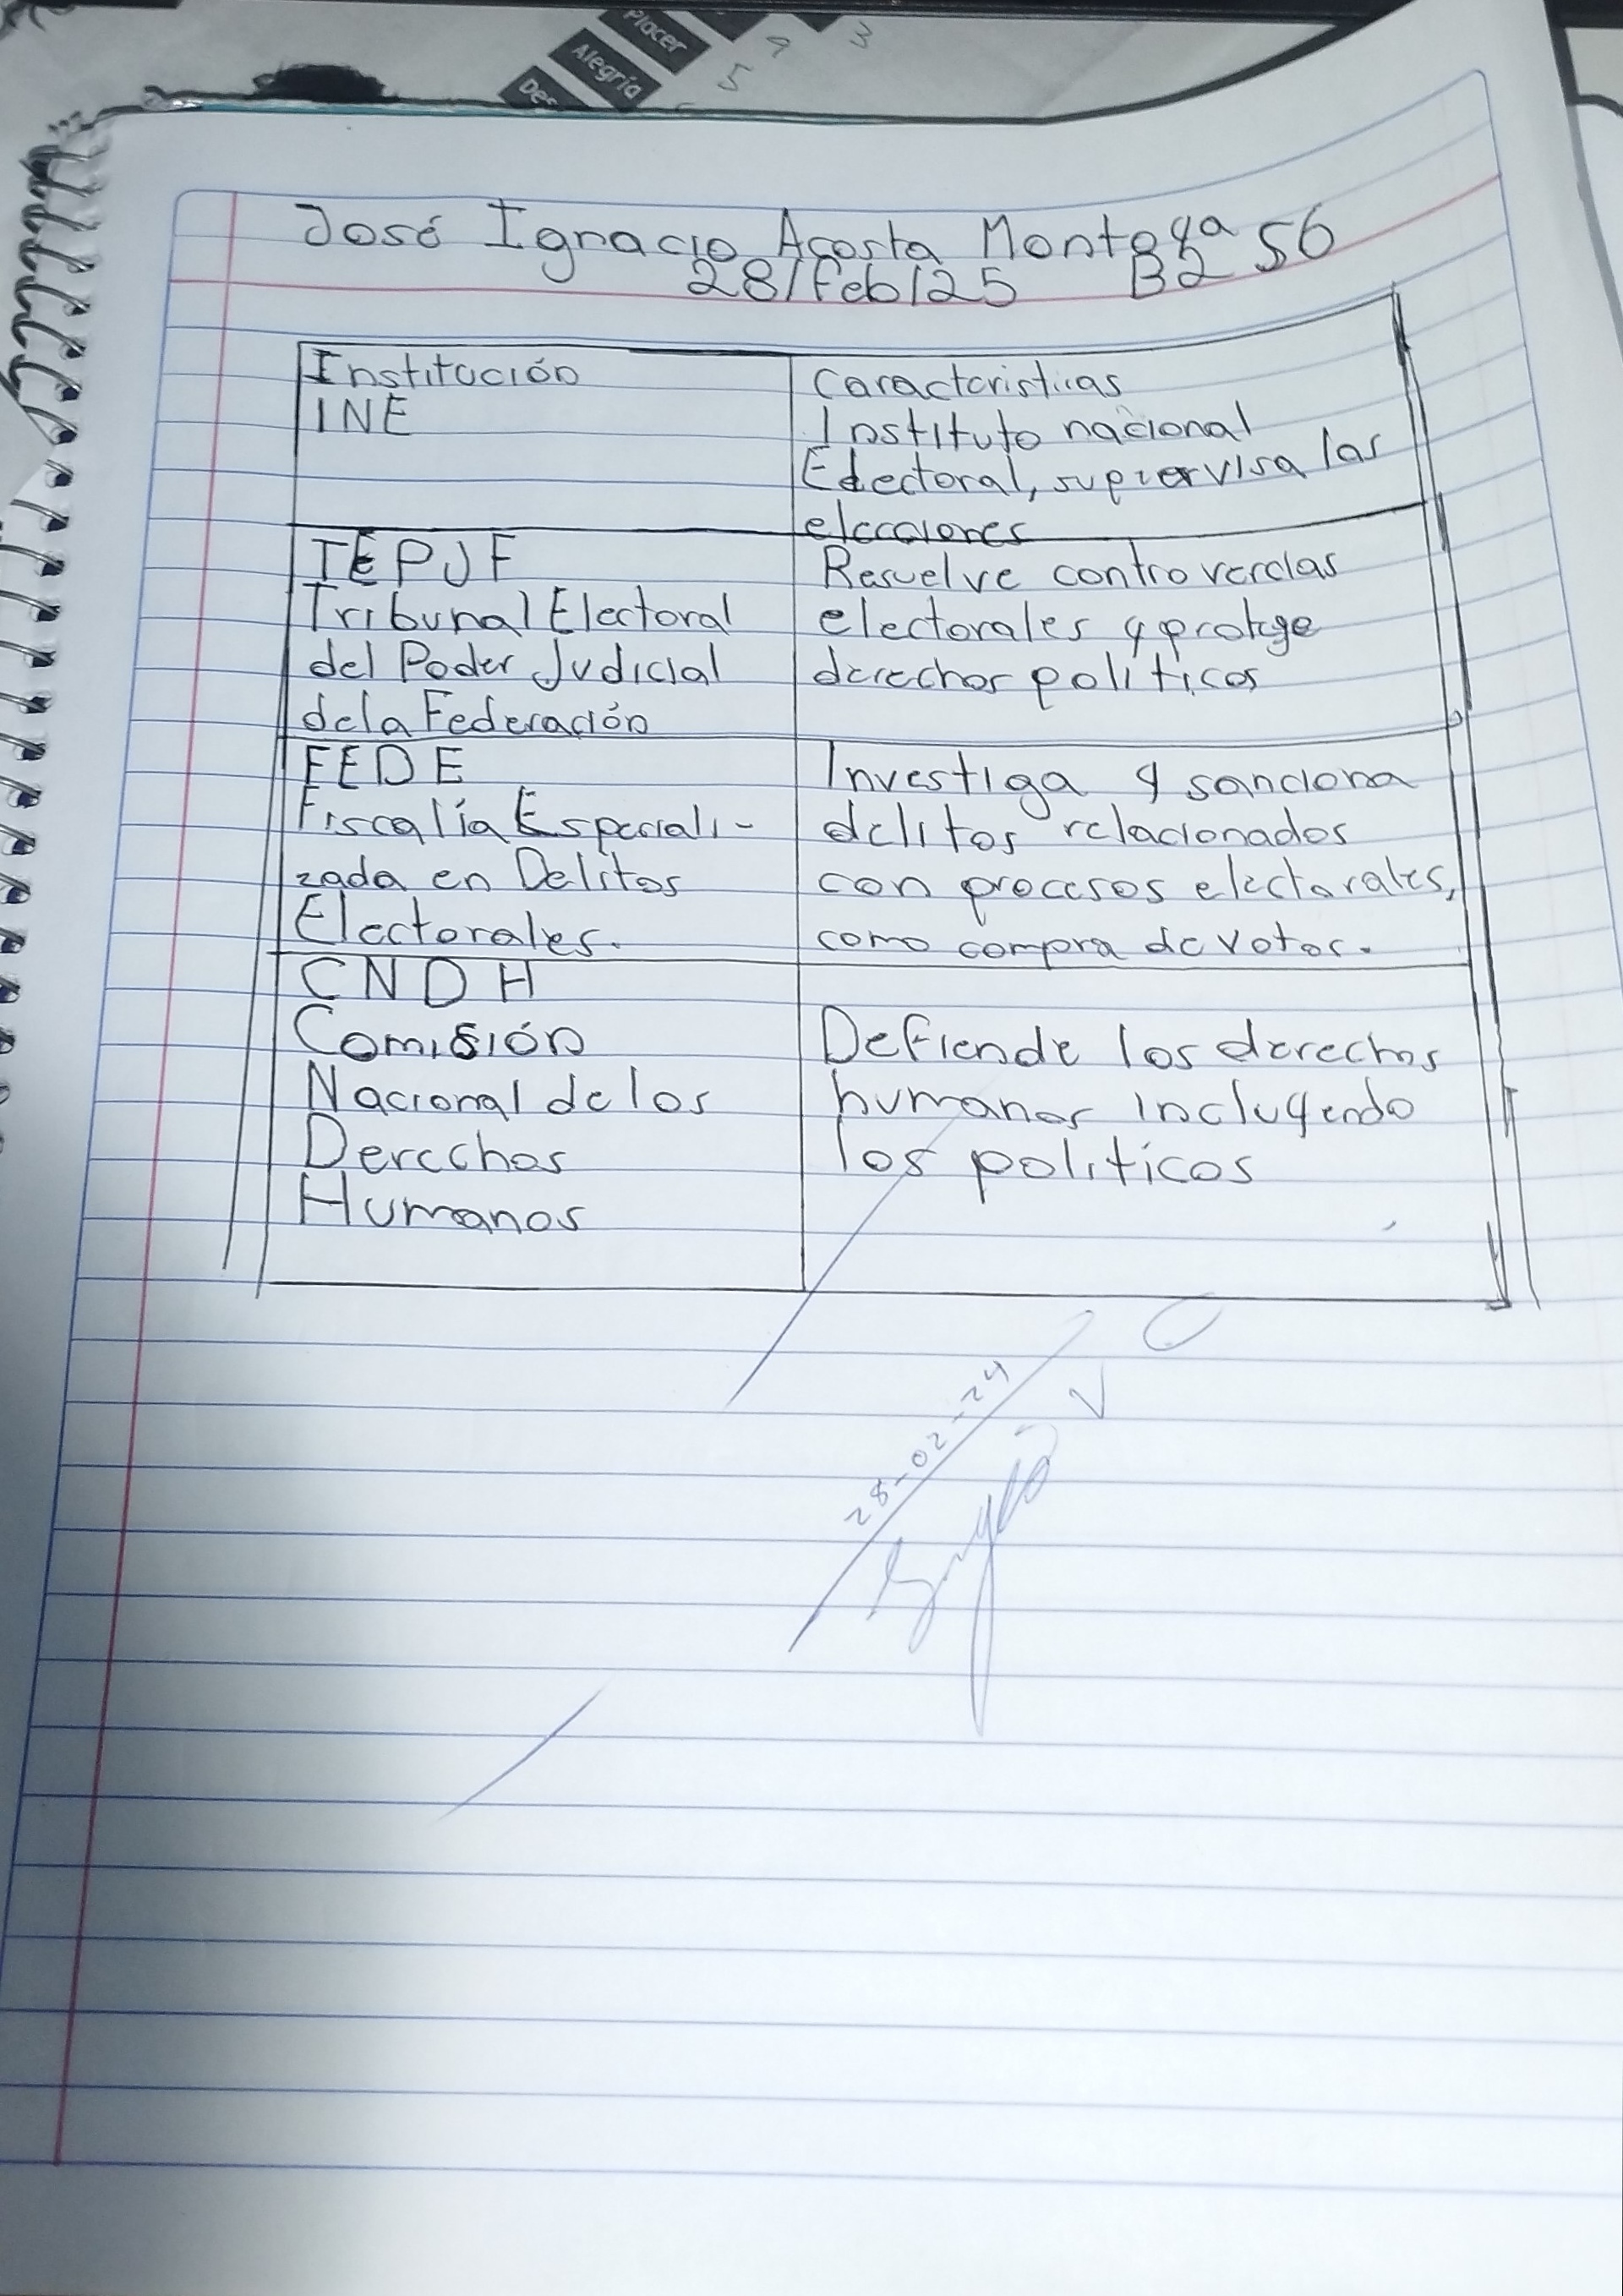 Placer
Alegría
Des
9
3
5
José Ignacio Acosta Montoya 56
28/Feb/25 B2
Institución
INE
Caracteristicas
Instituto nacional
Electoral, supervisa las
elecciones
TEPJF
Tribunal Electoral
del Poder Judicial
de la Federación
Resuelve controvercias
electorales y protege
derechos politicos
FEDE
Fiscalía Especiali-
zada en Delitos
Electorales.
Investiga y sanciona
delitos relacionados
con procesos electorales,
como compra de votos.
CNDH
Comisión
Nacional de los
Derechos
Humanos
Defiende los derechos
humanos incluyendo
los políticos
28-02-24